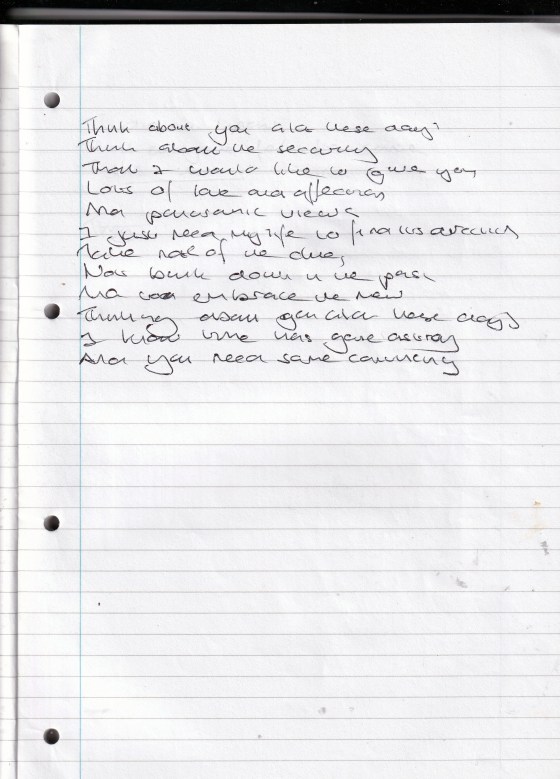 Think about you alot these days
Think about the security
That I would like to give you
Lots of love and affection
And panoramic views
I just need my life to find its direction
Take note of the clues
Not back down in the past
And embrace the new
Thinking about you alot these days
I know time has gone astray
And you need some